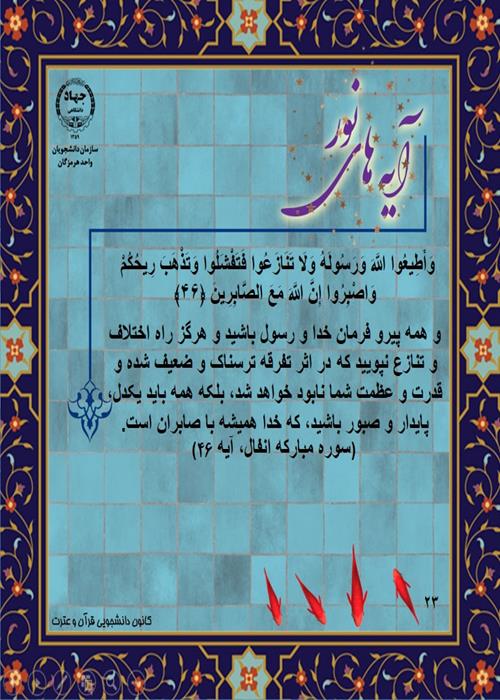 جهاد
دانشگاهی
۱۳۵۹
سازمان دانشجویان
واحد هرمزگان
آیه های نور
وَأَطِيعُوا اللَّهَ وَرَسُولَهُ وَلَا تَنَازَعُوا فَتَفْشَلُوا وَتَذْهَبَ رِيحُكُمْ
وَاصْبِرُوا إِنَّ اللَّهَ مَعَ الصَّابِرِينَ ﴿۴۶﴾
و همه پیرو فرمان خدا و رسول باشید و هرگز راه اختلاف
و تنازع نپویید که در اثر تفرقه ترسناک و ضعیف شده و
قدرت و عظمت شما نابود خواهد شد، بلکه همه باید یکدل،
پایدار و صبور باشید، که خدا همیشه با صابران است.
(سوره مبارکه انفال، آیه ۴۶)
۲۳
کانون دانشجویی قرآن و عترت